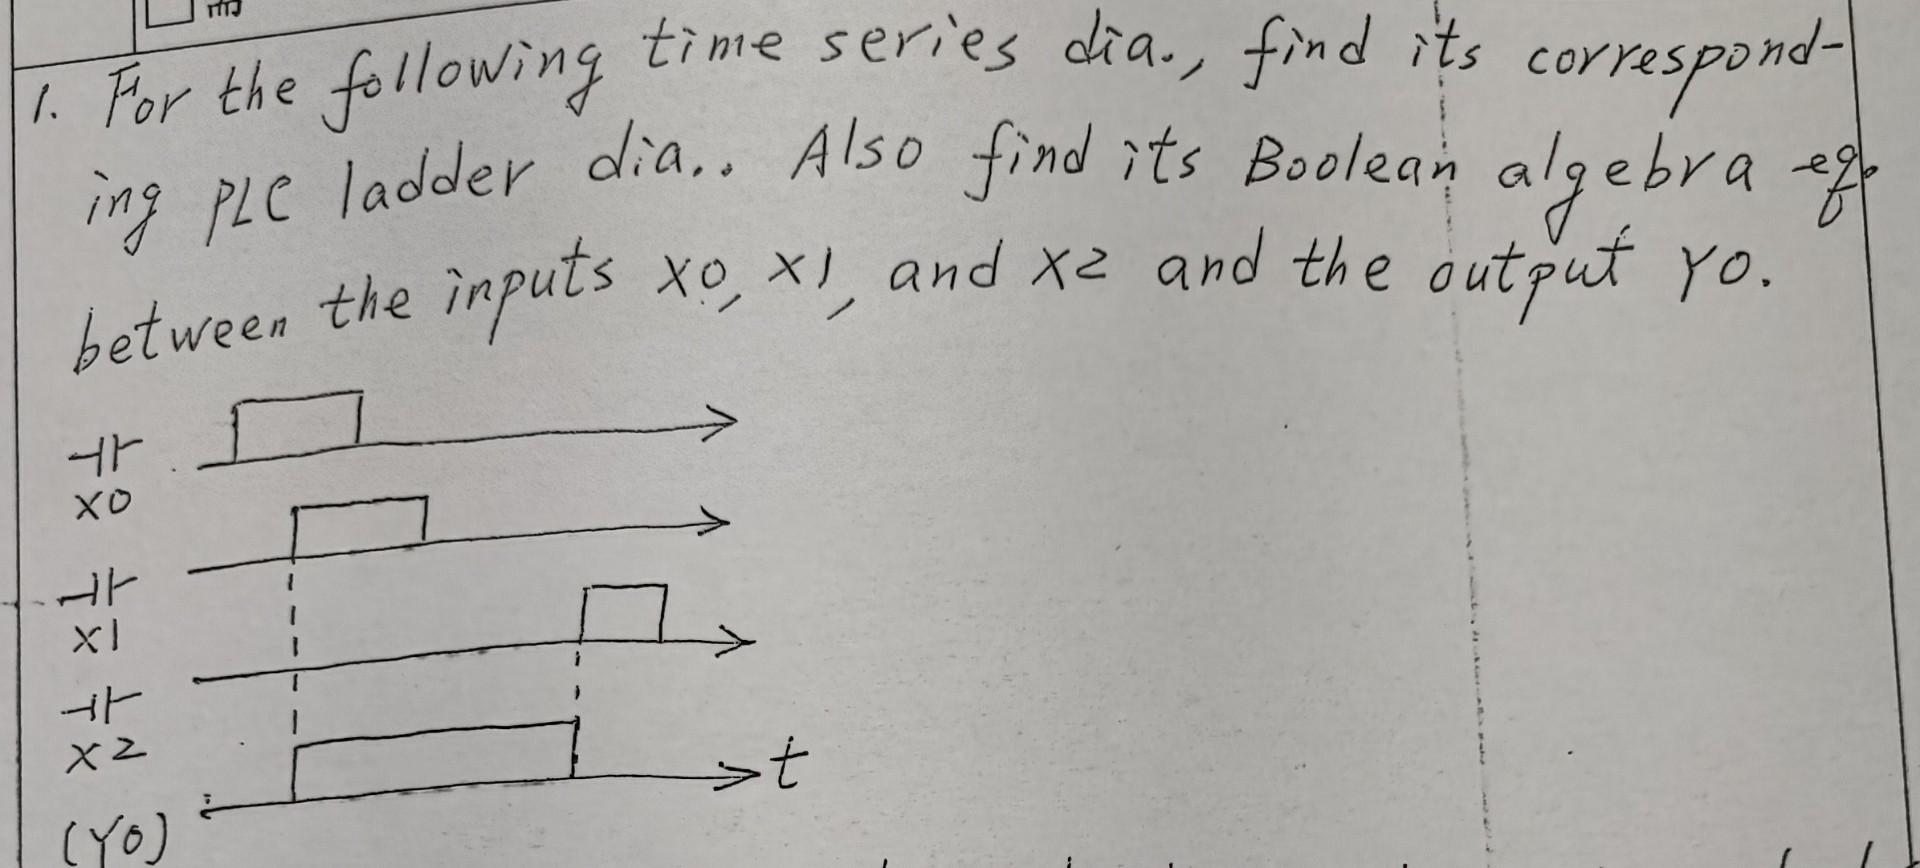 1. For the following time series dia., find its correspond-
ing PLC ladder dia.. Also find its Boolean algebra eq.
between the inputs X0, X1, and X2 and the output Y0.
X0
X1
X2
t
(Y0)